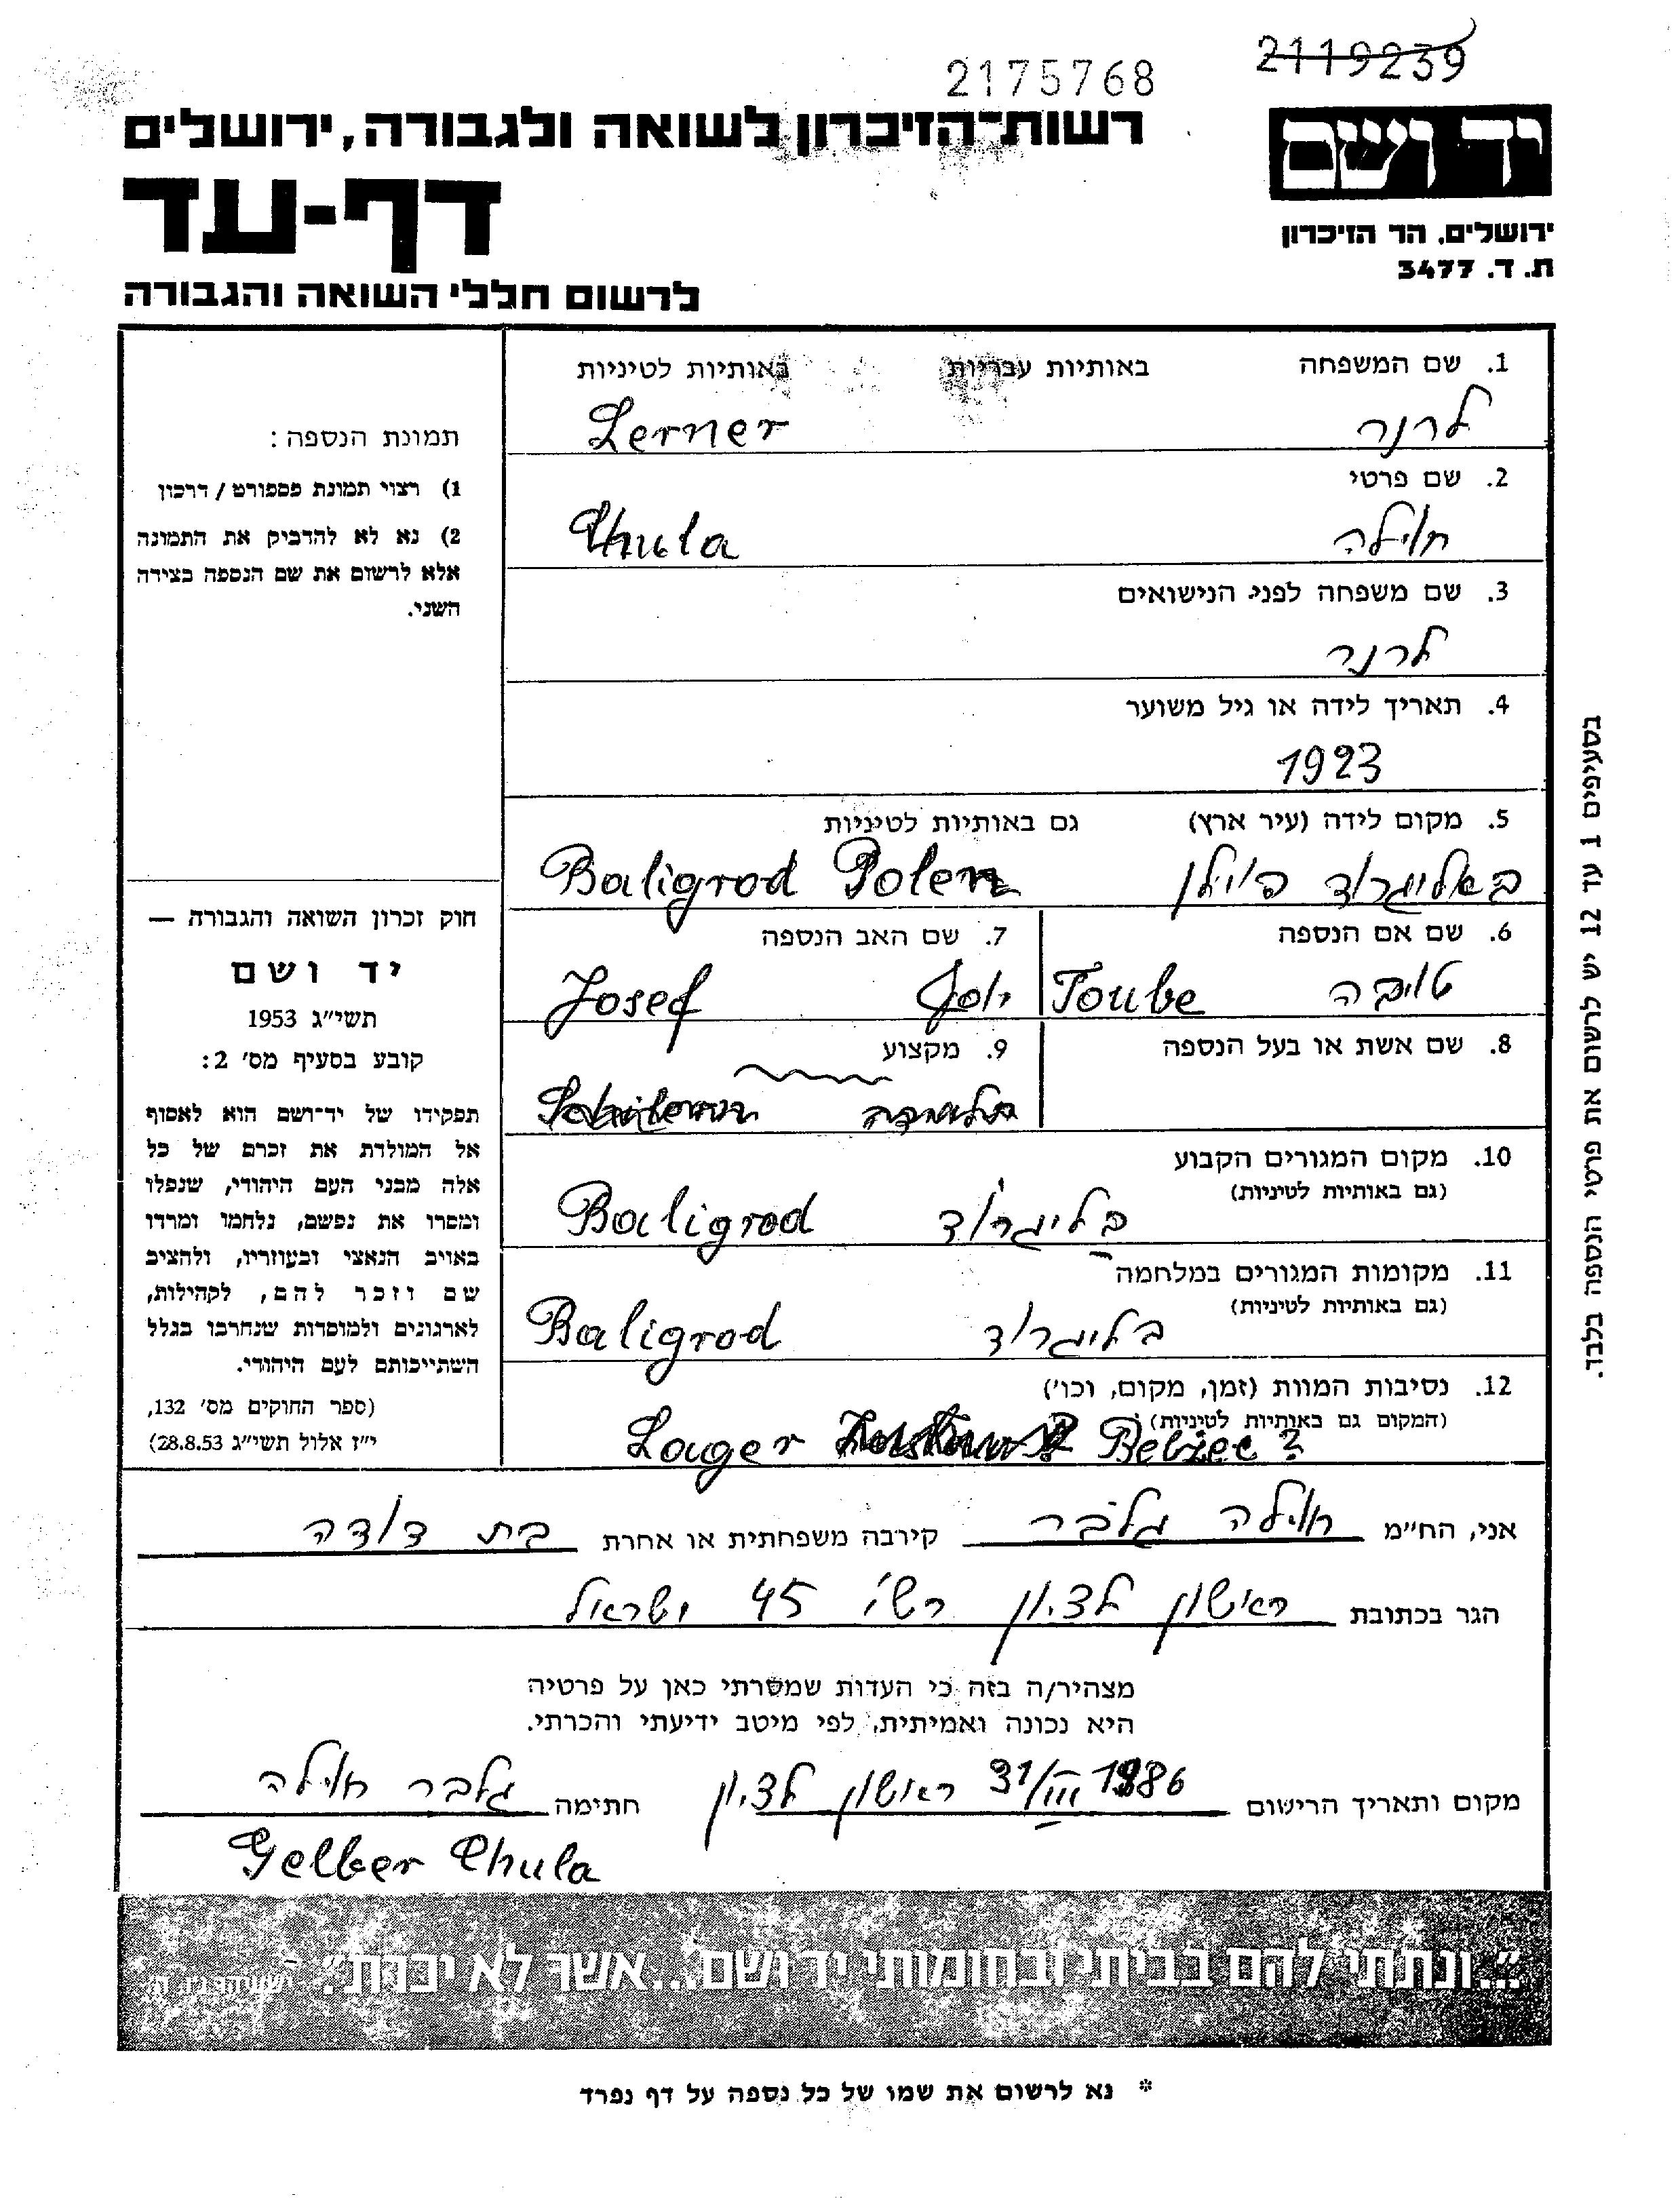 2175768
2119239
רשות־הזיכרון לשואה ולגבורה, ירושלים
יד ושם
דף-עד
ירושלים, הר הזיכרון
ת. ד. 3477
לרשום חללי השואה והגבורה
1. שם המשפחה באותיות עבריות באותיות לטיניות
לרנר Lerner
2. שם פרטי
חולה Chula
3. שם משפחה לפני הנישואים
לרנר
4. תאריך לידה או גיל משוער
1923
5. מקום לידה (עיר ארץ) גם באותיות לטיניות
באליגרוד פוילן Baligrod Polen
6. שם אם הנספה
טויבה Toube
7. שם האב הנספה
Josef
8. שם אשת או בעל הנספה
9. מקצוע
10. מקום המגורים הקבוע
(גם באותיות לטיניות)
בליגרוד Baligrod
11. מקומות המגורים במלחמה
(גם באותיות לטיניות)
בליגרוד Baligrod
12. נסיבות המוות (זמן, מקום, וכו')
(המקום גם באותיות לטיניות)
Lager Belzec?
תמונת הנספה:
1) רצוי תמונת פספורט / דרכון
2) נא לא להדביק את התמונה
אלא לרשום את שם הנספה בצידה
השני.
חוק זכרון השואה והגבורה —
יד ושם
תשי״ג 1953
קובע בסעיף מס׳ 2:
תפקידו של יד־ושם הוא לאסוף
אל המולדת את זכרם של כל
אלה מבני העם היהודי, שנפלו
ומסרו את נפשם, נלחמו ומרדו
באויב הנאצי ובעוזריו, ולהציב
שם וזכר להם, לקהילות,
לארגונים ולמוסדות שנחרבו בגלל
השתייכותם לעם היהודי.
(ספר החוקים מס׳ 132,
י״ז אלול תשי״ג 28.8.53)
בסעיפים 1 עד 12 יש לרשום את פרטי הנספה בלבד.
אני, הח״מ חולה גלבר קירבה משפחתית או אחרת בת דודה
הגר בכתובת ראשון לציון רש״י 45 ישראל
מצהיר/ה בזה כי העדות שמסרתי כאן על פרטיה
היא נכונה ואמיתית, לפי מיטב ידיעתי והכרתי.
מקום ותאריך הרישום 31/III 1986 ראשון לציון חתימה גלבר חולה
Gelber Chula
"...ונתתי להם בביתי ובחומותי יד ושם...אשר לא יכרת". ישעיהו נ״ו, ה׳
* נא לרשום את שמו של כל נספה על דף נפרד